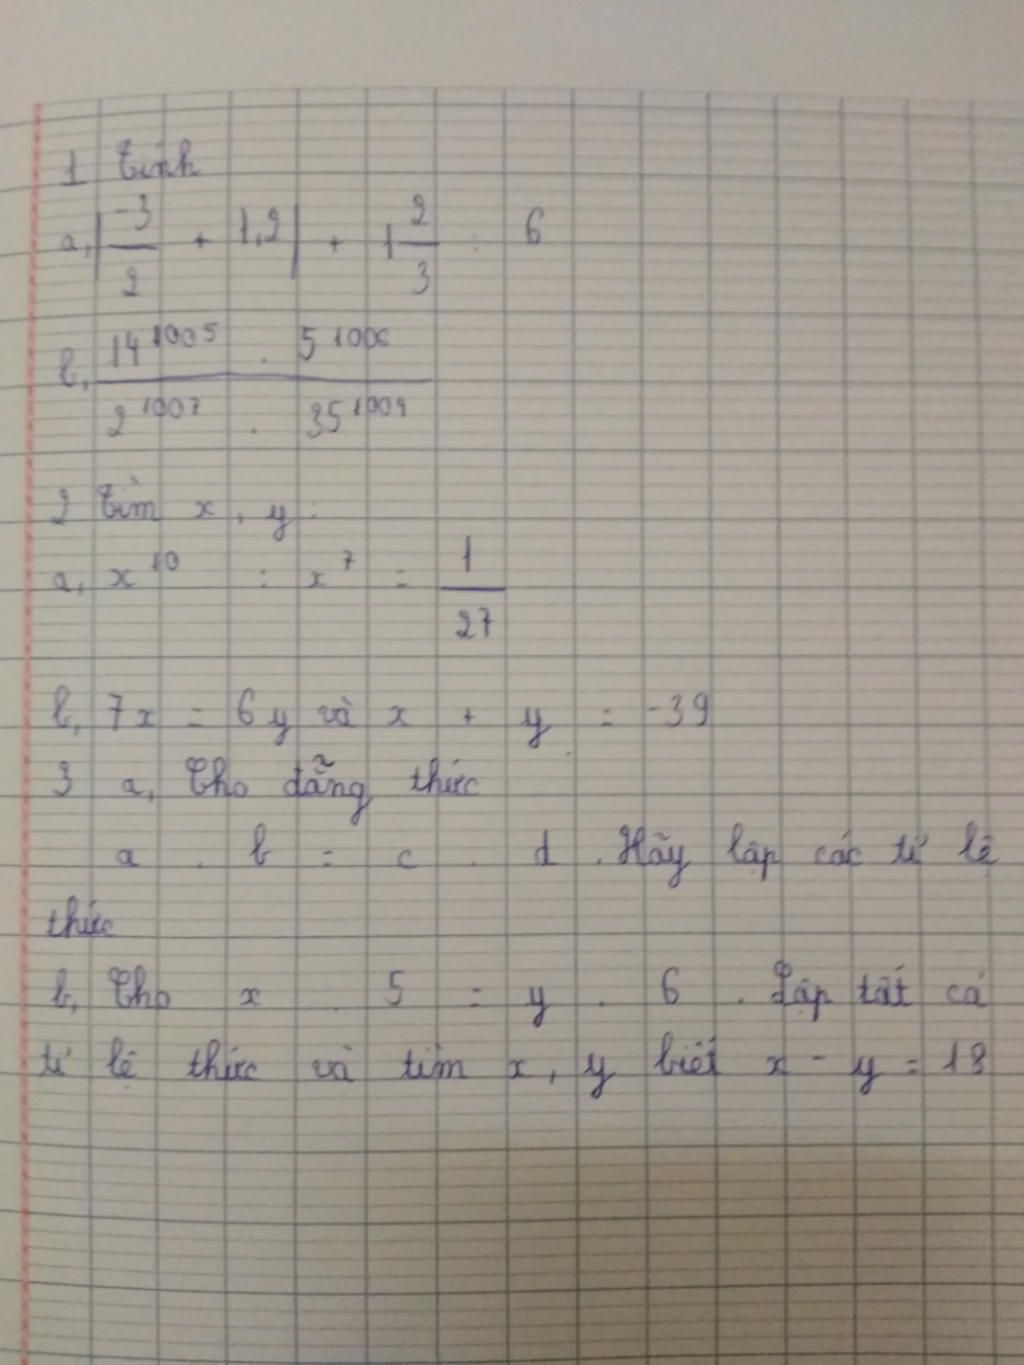 1 Tính
a, |-3/2 + 1,2| + 1 2/3 : 6
b, 14^1005 . 5^1006 / 2^1007 . 35^1004
2 Tìm x, y :
a, x^10 : x^7 = 1/27
b, 7x = 6y và x + y = -39
3 a, Cho đẵng thức
a . b = c . d . Hãy lập các tỉ lệ
thức
b, Cho x . 5 = y . 6 . Lập tất cả
tỉ lệ thức và tìm x, y biết x - y = 18